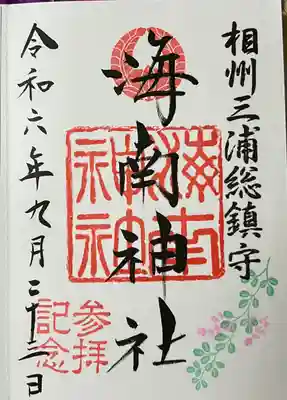 相州三浦総鎮守
海南神社
海南神社
令和六年九月二十二日
参拝
記念